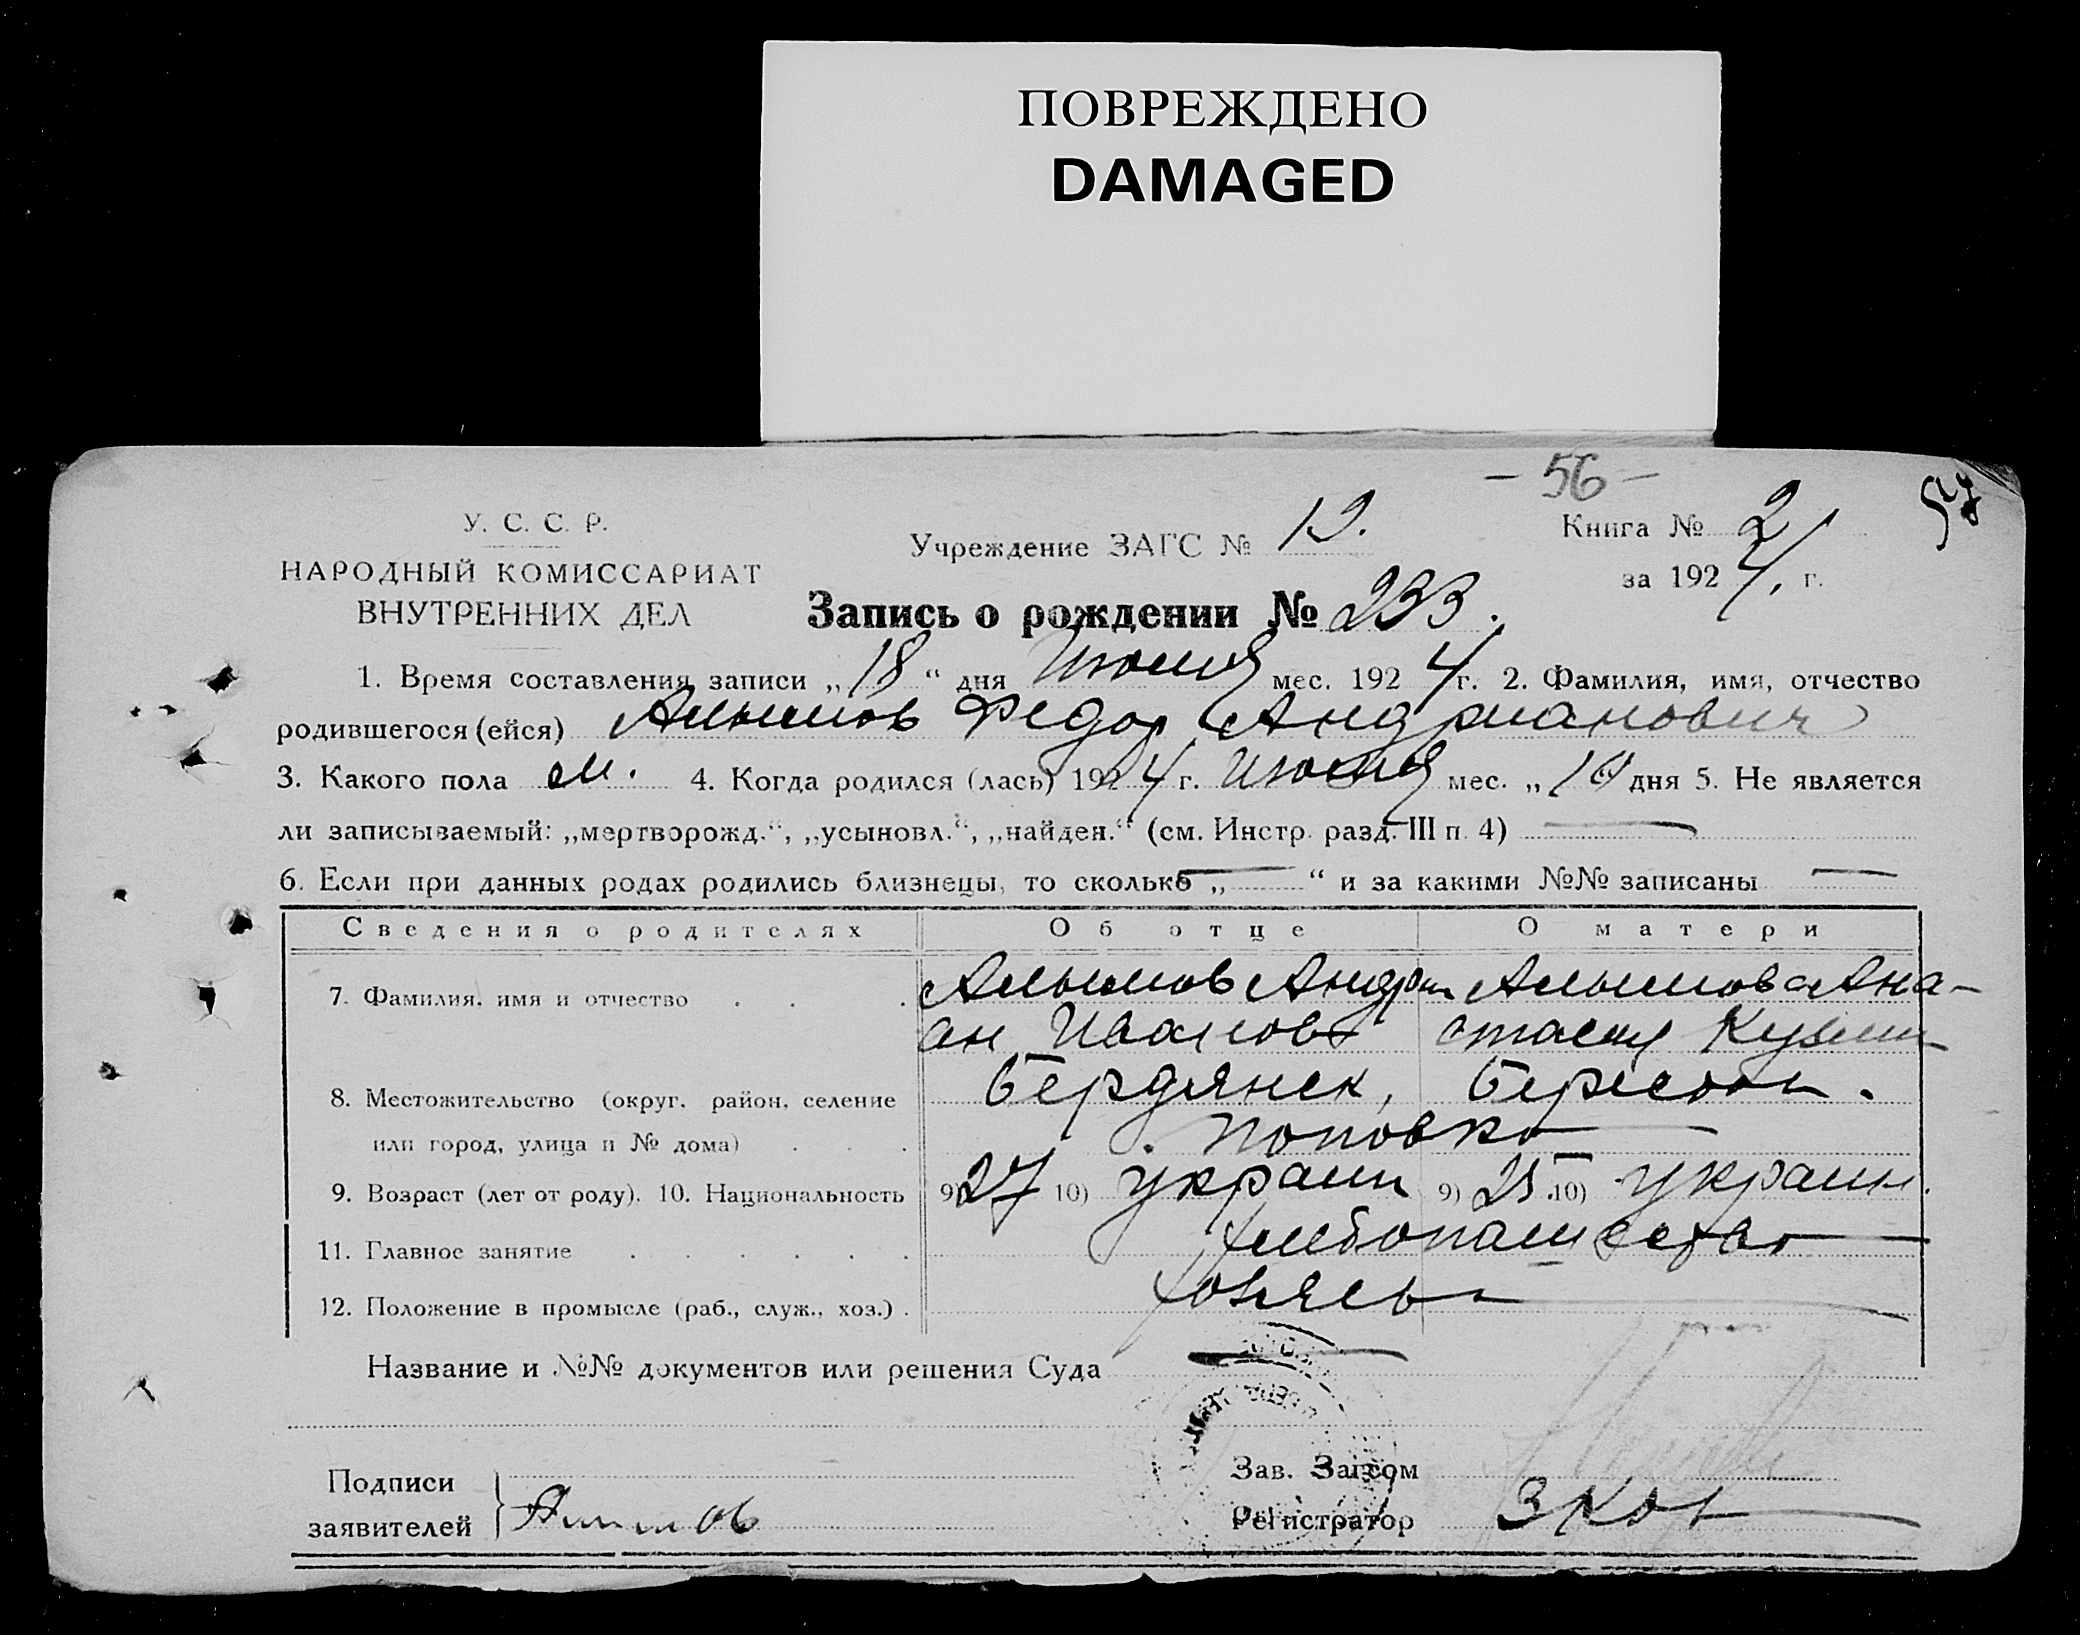 ПОВРЕЖДЕНО
DAMAGED
— 56 —
У. С. С. Р.
НАРОДНЫЙ КОМИССАРИАТ
ВНУТРЕННИХ ДЕЛ
Учреждение ЗАГС № 12.
Книга № 2
за 1924, г.
Запись о рождении № 233.
1. Время составления записи „18“ дня Июня мес. 1924 г. 2. Фамилия, имя, отчество
родившегося (ейся) Алымов Федор Андрианович
3. Какого пола м. 4. Когда родился (лась) 1924 г. Июня мес. „ дня 5. Не является
ли записываемый: „мертворожд.“, „усыновл.“, „найден.“ (см. Инстр. разд. III п. 4) —
6. Если при данных родах родились близнецы, то сколько „—“ и за какими №№ записаны —
Сведения о родителях Об отце О матери
7. Фамилия, имя и отчество . . . Алымов Андри Алымова Ана-
ан Иванов стасия Кузьми
8. Местожительство (округ, район, селение Бердянск,
или город, улица и № дома) . . . Поповка
9. Возраст (лет от роду). 10. Национальность 9) 27 10) украин 9) 25 10) украин.
11. Главное занятие . . . . . . хлебопашество
12. Положение в промысле (раб., служ., хоз.) . хозяева
Название и №№ документов или решения Суда —
Подписи
заявителей
Зав. Загсом
Регистратор